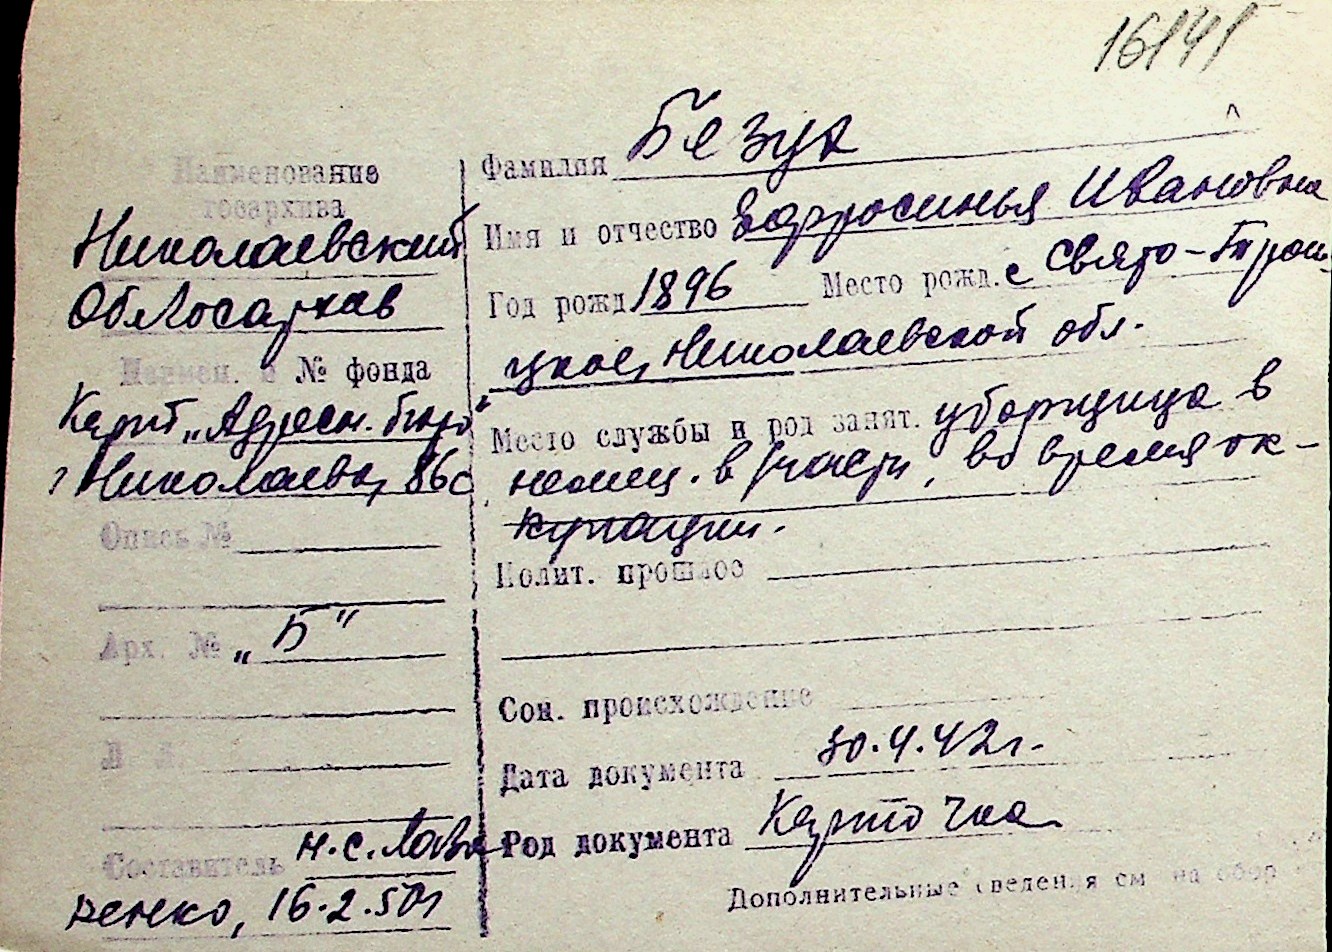 16141
Наименование
госархива
Николаевский
Облгосархив
Наимен. и № фонда
Карт. „Адресн. бюро"
г Николаева, 86с
Опись №
Арх. № „Б"
Л. Л.
Составитель Н.С. Лав
ренко, 16.2.50г
Фамилия Безух
Имя и отчество Ефросинья Ивановна
Год рожд 1896 Место рожд. с Свято-Трои
цкое, Николаевской обл.
Место службы и род занят. уборщица в
немец. в/части, во время ок-
купации.
Полит. прошлое
Соц. происхождение
Дата документа 30.4.42г.
Род документа Карточка
Дополнительные сведения см на обор